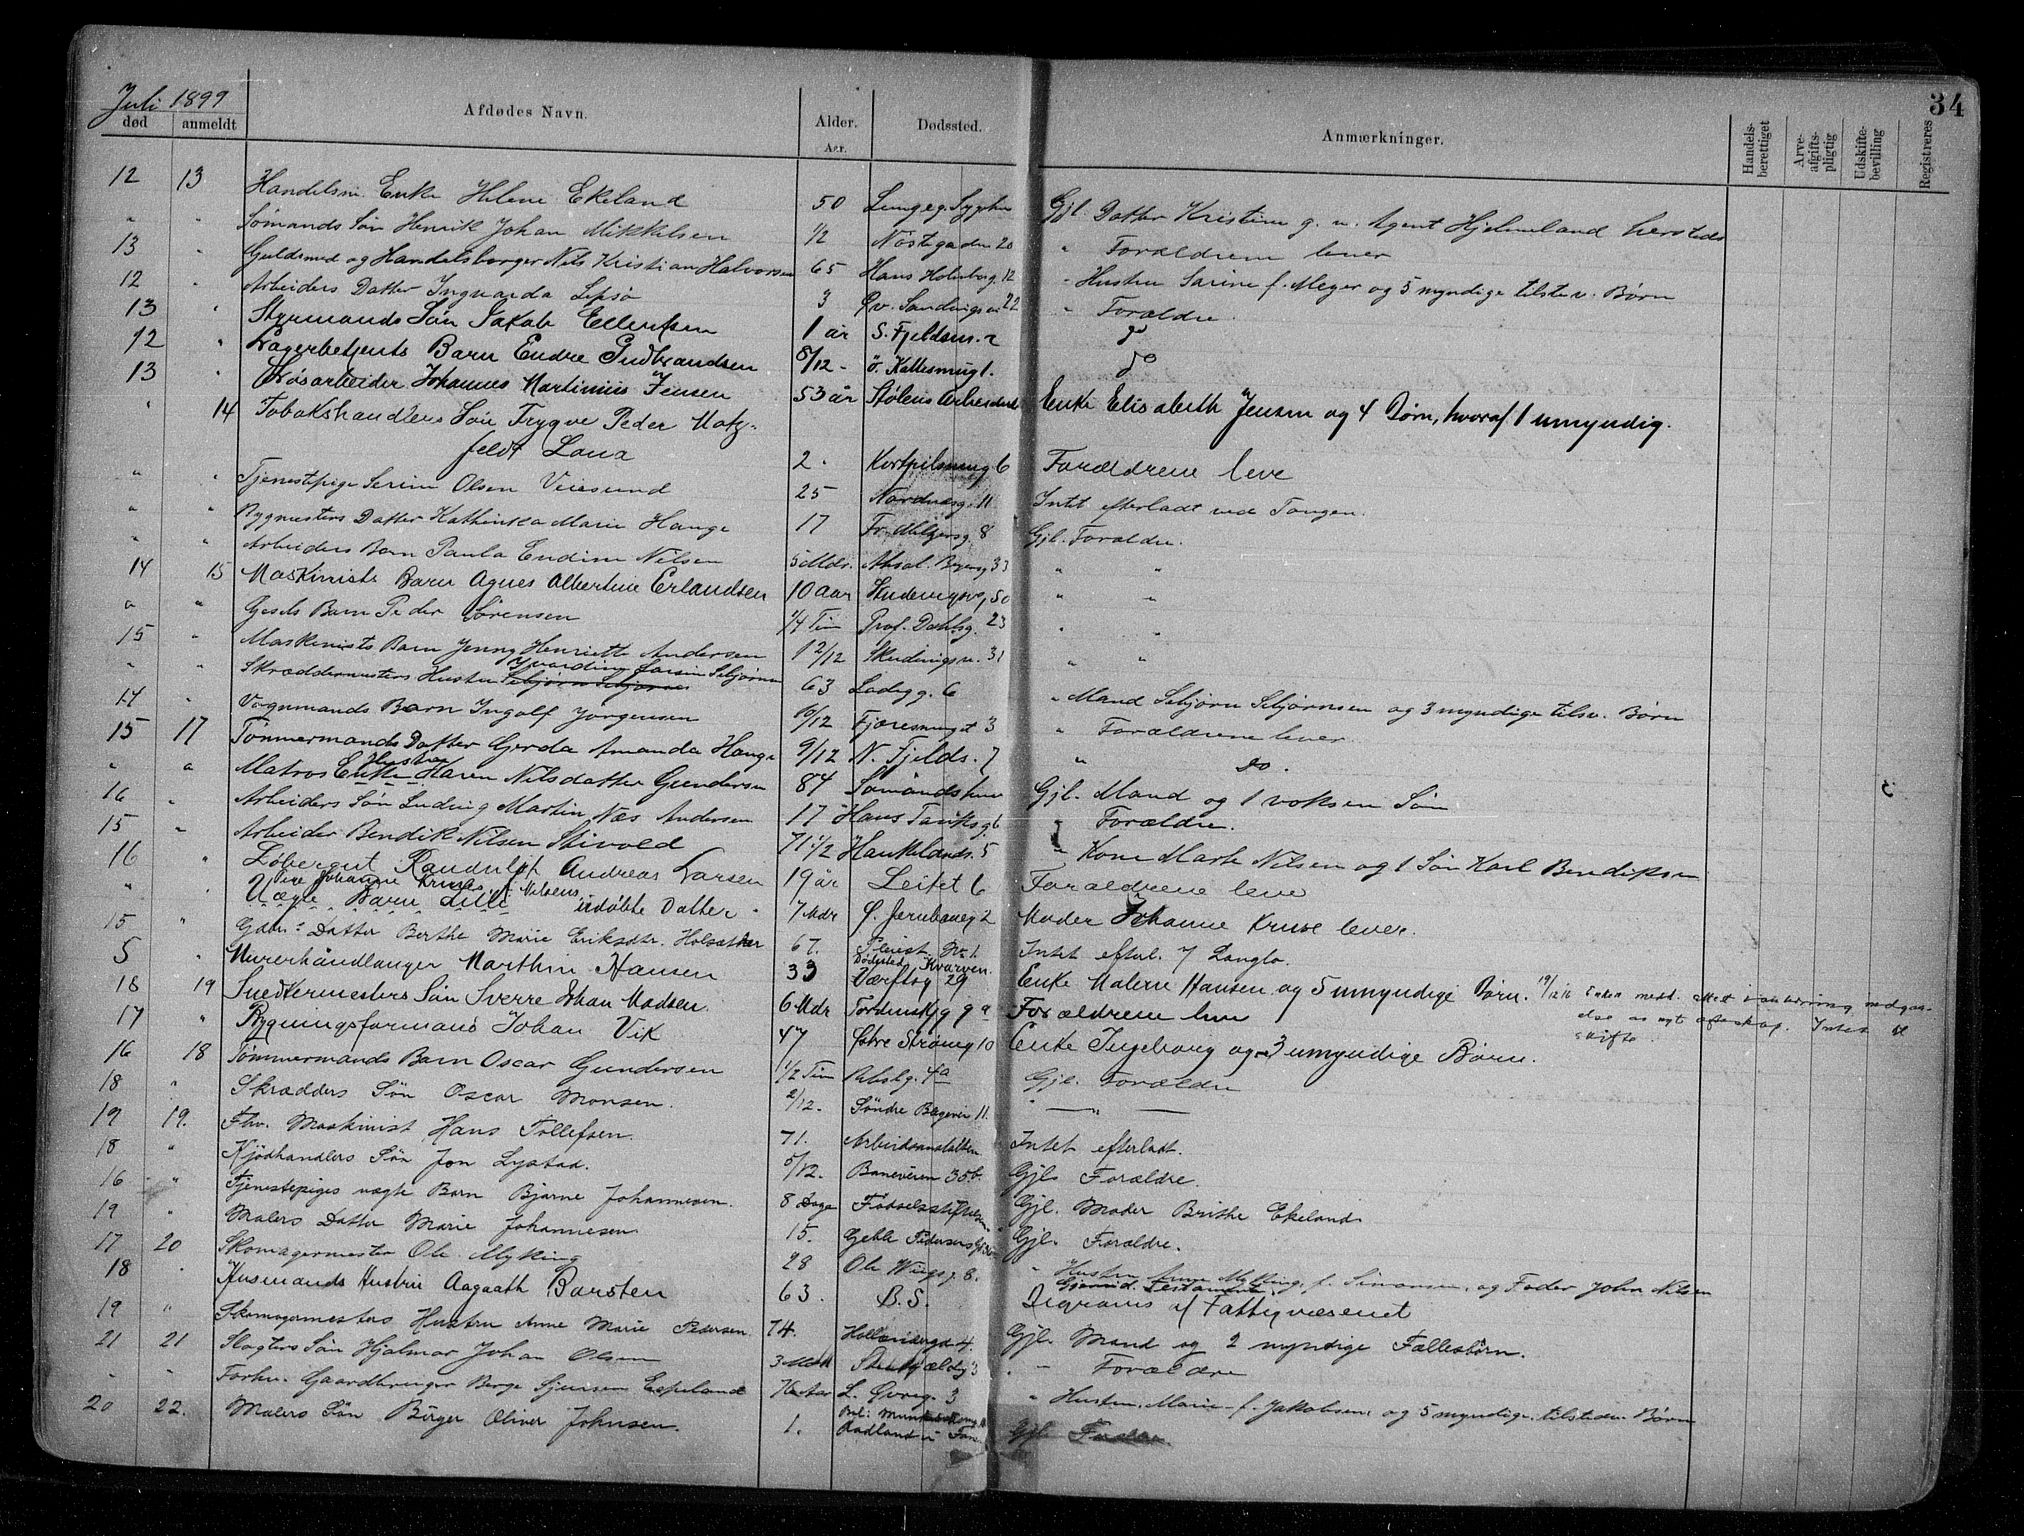 34
Juli 1899
død anmeldt Afdødes Navn. Alder. Aar. Dødssted. Anmærkninger. Handels-berettiget Arve-afgifts-pligtig Udskifte-bevilling Registreres
12 13 Handelsm Enke Helene Ekeland 50 Lungeg. Sygehu Gjl. Datter Kristine g. m. Agent Hjelmeland hersteds
" " Sømands Søn Henrik Johan Mikkelsen 1/2 Nøstegaden 20 " Forældrene lever
13 " Guldsmed og Handelsborger Nils Kristian Halvorsen 65 Hans Holmbog. 12 " Hustru Sarine f. Meyer og 5 myndige tilstev. Børn
12 " Arbeiders Datter Ingvarda Lepsø 3 Øv. Sandvigsv. 22 " Forældre.
13 " Styrmands Søn Jakob Ellertsen 1 år S. Fjeldsm. 2 do
12 " Lagerbetjents Barn Endre Gudbrandsen 8/12 - ö. Kattesmug 1. do
13 " Løsarbeider Johannes Martinius Jensen 53 år Stølens Arbeider Enke Elisabeth Jensen og 4 Børn, hvoraf 1 umyndig.
" 14 Tobakshandlers Søn Trygve Peder Motz-
feldt Lana 2 - Kortpilsmug 6 Forældrene leve
" " Tjenestepige Serine Olsen Veiesund 25 Nordnæsg. 11 Intet efterladt ved Tangen.
" " Bygmesters Datter Kathinka Marie Hauge 17 Fr. Meltzersg. 8 Gjl. Forældre.
" " Arbeiders Barn Paula Endine Nilsen 5 Mdr. Absal. Beyersg 33 " "
14 15 Maskinists Barn Agnes Albertine Erlandsen 10 Aar Skudevigsv. 50 " "
" " Gesels Barn Peder Sørensen 1/4 Tim Prof. Dahlsg. 23 " "
15 " Maskinists Barn Jenny Henriette Andersen 1 2/12 Skudvigsv. 31 " "
" " Skræddermesters Hustru Sebjørnsen 63 Ladegg. 6 " Mand Sebjørn Sebjørnsen og 3 myndige tilsv. Børn
14 " Vognmands Barn Ingolf Jørgensen 6/12 Fjæresmuget 3 " Forældrene lever
15 17 Tømmermands Datter Gerda Amanda Hauge 9/12 N. Fjelds. 7 " do.
" " Matros Enke Hustru Karen Nilsdatter Gundersen 84 Sømandshus Gjl. Mand og 1 voksen Søn
16 " Arbeiders Søn Ludvig Martin Næs Andersen 17 Hans Tanksg. 6 Forældre.
15 " Arbeider Bendik Nilsen Stivold 71 1/2 Haukelands. 5 " Kone Marte Nilsen og 1 Søn Karl Bendiksen
16 " Løbergut Randulf Andreas Larsen 19 år Leitet 6 Forældrene leve
" Pige Johanne Kruses f. Nilsens
Uægte Barn Lille udøbte Datter - 7 Mdr Ø. Jernbaneg 2 Moder Johanne Kruse lever.
15 " Gdm: Datter Berthe Marie Eriksdtr. Holsæther 67. Pleiest. No 1. Intet efterl. 7 Langlo.
5 " Murerhåndlanger Marthin Hansen 33 Dødssted Kvarven. Værftsg 29 Enke Malene Hansen og 5 umyndige Børn.
18 19 Snedkermesters Søn Sverre Johan Madsen. 6 Mdr Tordenskjg 9 a Forældrene leve
17 " Bygningsformand Johan Vik 47 Øvre Strangg 10 Enke Ingeborg og 3 umyndige Børn.
16 18 Tømmermands Barn Oscar Gundersen 1/2 Tim Absbg. 4a Gjl. Forældre
18 " Skrædders Søn Oscar Monsen. 2/12. Søndre Bageveie 11. " — " —
19 19. Fhv. Maskinist Hans Tollefsen. 71. Arbeidsanstalten Intet efterladt.
18 " Kjødhandlers Søn Jon Lystad. 5/12. Baneveien 35b. Gjl. Forældre.
16 " Tjenestepiges uægte Barn Bjarne Johannesen. 8 Dage Fødselsstiftelsen Gjl. Moder Brithe Ekeland
19 " Malers Datter Marie Johannesen 15. Geble Pedersens G. 36 Gjl. Forældre.
17 20 Skomagermester Ole Myking 28 Ole Wiigsg. 8. " Hustru Anne Myking, f. Simonsen, og Fader John Nilsen
18 " Husmands Hustru Aagaath Barsten 63. B.S. Gjensid. Testament Begraves af Fattigvæsenet
19 " Skomagermesters Hustru Anne Marie Pedersen 74. Hollændergd 4. Gjl. Mand og 2 myndige Fællesbørn.
21 21 Slagters Søn Hjalmar Johan Olsen 3 Mdr Stenkjældg 3 " Forældre
" " Forhv. Gaardbruger Berge Sjursen Espeland 76 Aar L. Øvreg. 3 " Hustru, Marie f. Jakobsen, og 5 myndige, tilstede Børn
20 22. Malers Søn Birger Oliver Johnsen. 1. Radland i Fane Gjl Fader.